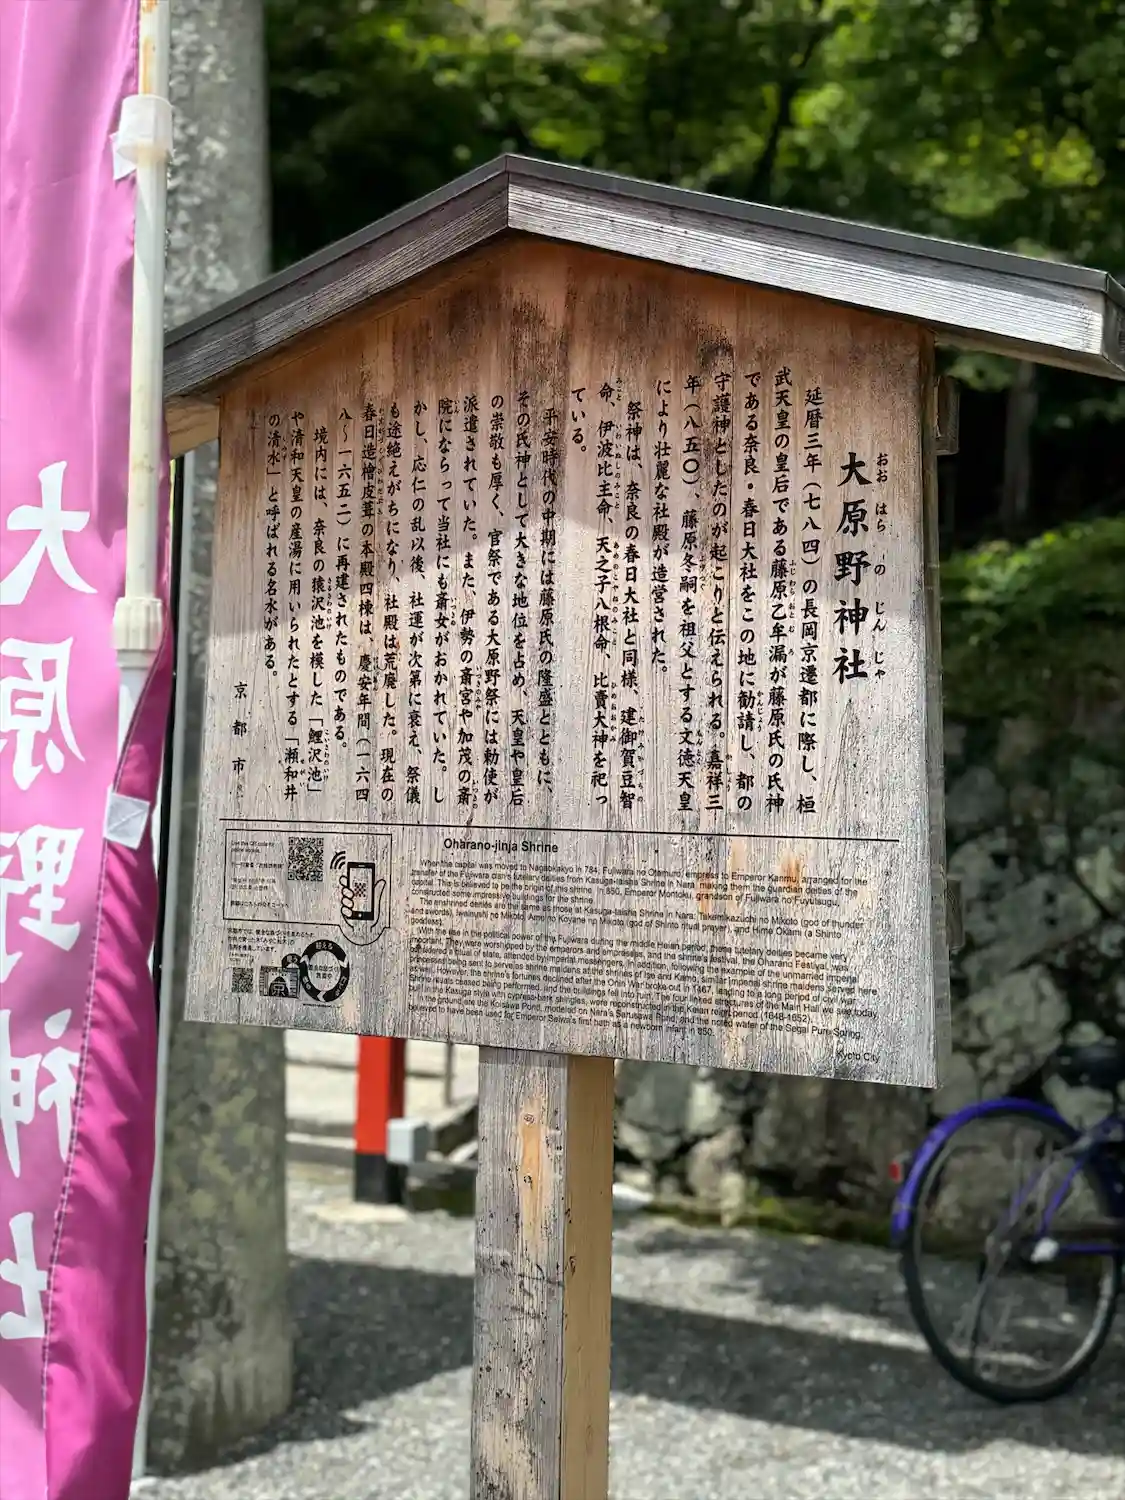 大原野神社
おお はら の じん じゃ
延暦三年（七八四）の長岡京遷都に際し、桓
武天皇の皇后である藤原乙牟漏が藤原氏の氏神
である奈良・春日大社をこの地に勧請し、都の
守護神としたのが起こりと伝えられる。嘉祥三
年（八五〇）、藤原冬嗣を祖父とする文徳天皇
により壮麗な社殿が造営された。
祭神は、奈良の春日大社と同様、建御賀豆智
命、伊波比主命、天之子八根命、比賣大神を祀っ
ている。
平安時代の中期には藤原氏の隆盛とともに、
その氏神として大きな地位を占め、天皇や皇后
の崇敬も厚く、官祭である大原野祭には勅使が
派遣されていた。また、伊勢の斎宮や加茂の斎
院にならって当社にも斎女がおかれていた。し
かし、応仁の乱以後、社運が次第に衰え、祭儀
も途絶えがちになり、社殿は荒廃した。現在の
春日造檜皮葺の本殿四棟は、慶安年間（一六四
八～一六五二）に再建されたものである。
境内には、奈良の猿沢池を模した「鯉沢池」
や清和天皇の産湯に用いられたとする「瀬和井
の清水」と呼ばれる名水がある。
京都市
Oharano-jinja Shrine
When the capital was moved to Nagaokakyo in 784, Fujiwara no Otomuro, empress to Emperor Kanmu, arranged for the
transfer of the Fujiwara clan's tutelary deities from Kasuga-taisha Shrine in Nara, making them the guardian deities of the
capital. This is believed to be the origin of this shrine. In 850, Emperor Montoku, grandson of Fujiwara no Fuyutsugu,
constructed some impressive buildings for the shrine.
The enshrined deities are the same as those at Kasuga-taisha Shrine in Nara: Takemikazuchi no Mikoto (god of thunder
and swords), Iwainushi no Mikoto, Ame no Koyane no Mikoto (god of Shinto ritual prayer), and Hime Okami (a Shinto
goddess).
With the rise in the political power of the Fujiwara during the middle Heian period, these tutelary deities became very
important. They were worshipped by the emperors and empresses, and the shrine's festival, the Oharano Festival, was
considered a ritual of state, attended by imperial messengers. In addition, following the example of the unmarried imperial
princesses being sent to serve as shrine maidens at the shrines of Ise and Kamo, similar imperial shrine maidens served here
as well. However, the shrine's fortunes declined after the Onin War broke out in 1467, leading to a long period of civil war.
Shrine rituals ceased being performed, and the buildings fell into ruin. The four linked structures of the Main Hall we see today,
built in the Kasuga style with cypress-bark shingles, were reconstructed in the Keian reign period (1648-1652).
In the ground are the Koisawa Pond, modeled on Nara's Sarusawa Pond, and the noted water of the Segai Pure Spring,
believed to have been used for Emperor Seiwa's first bath as a newborn infant in 850.
Kyoto City
大原野神社